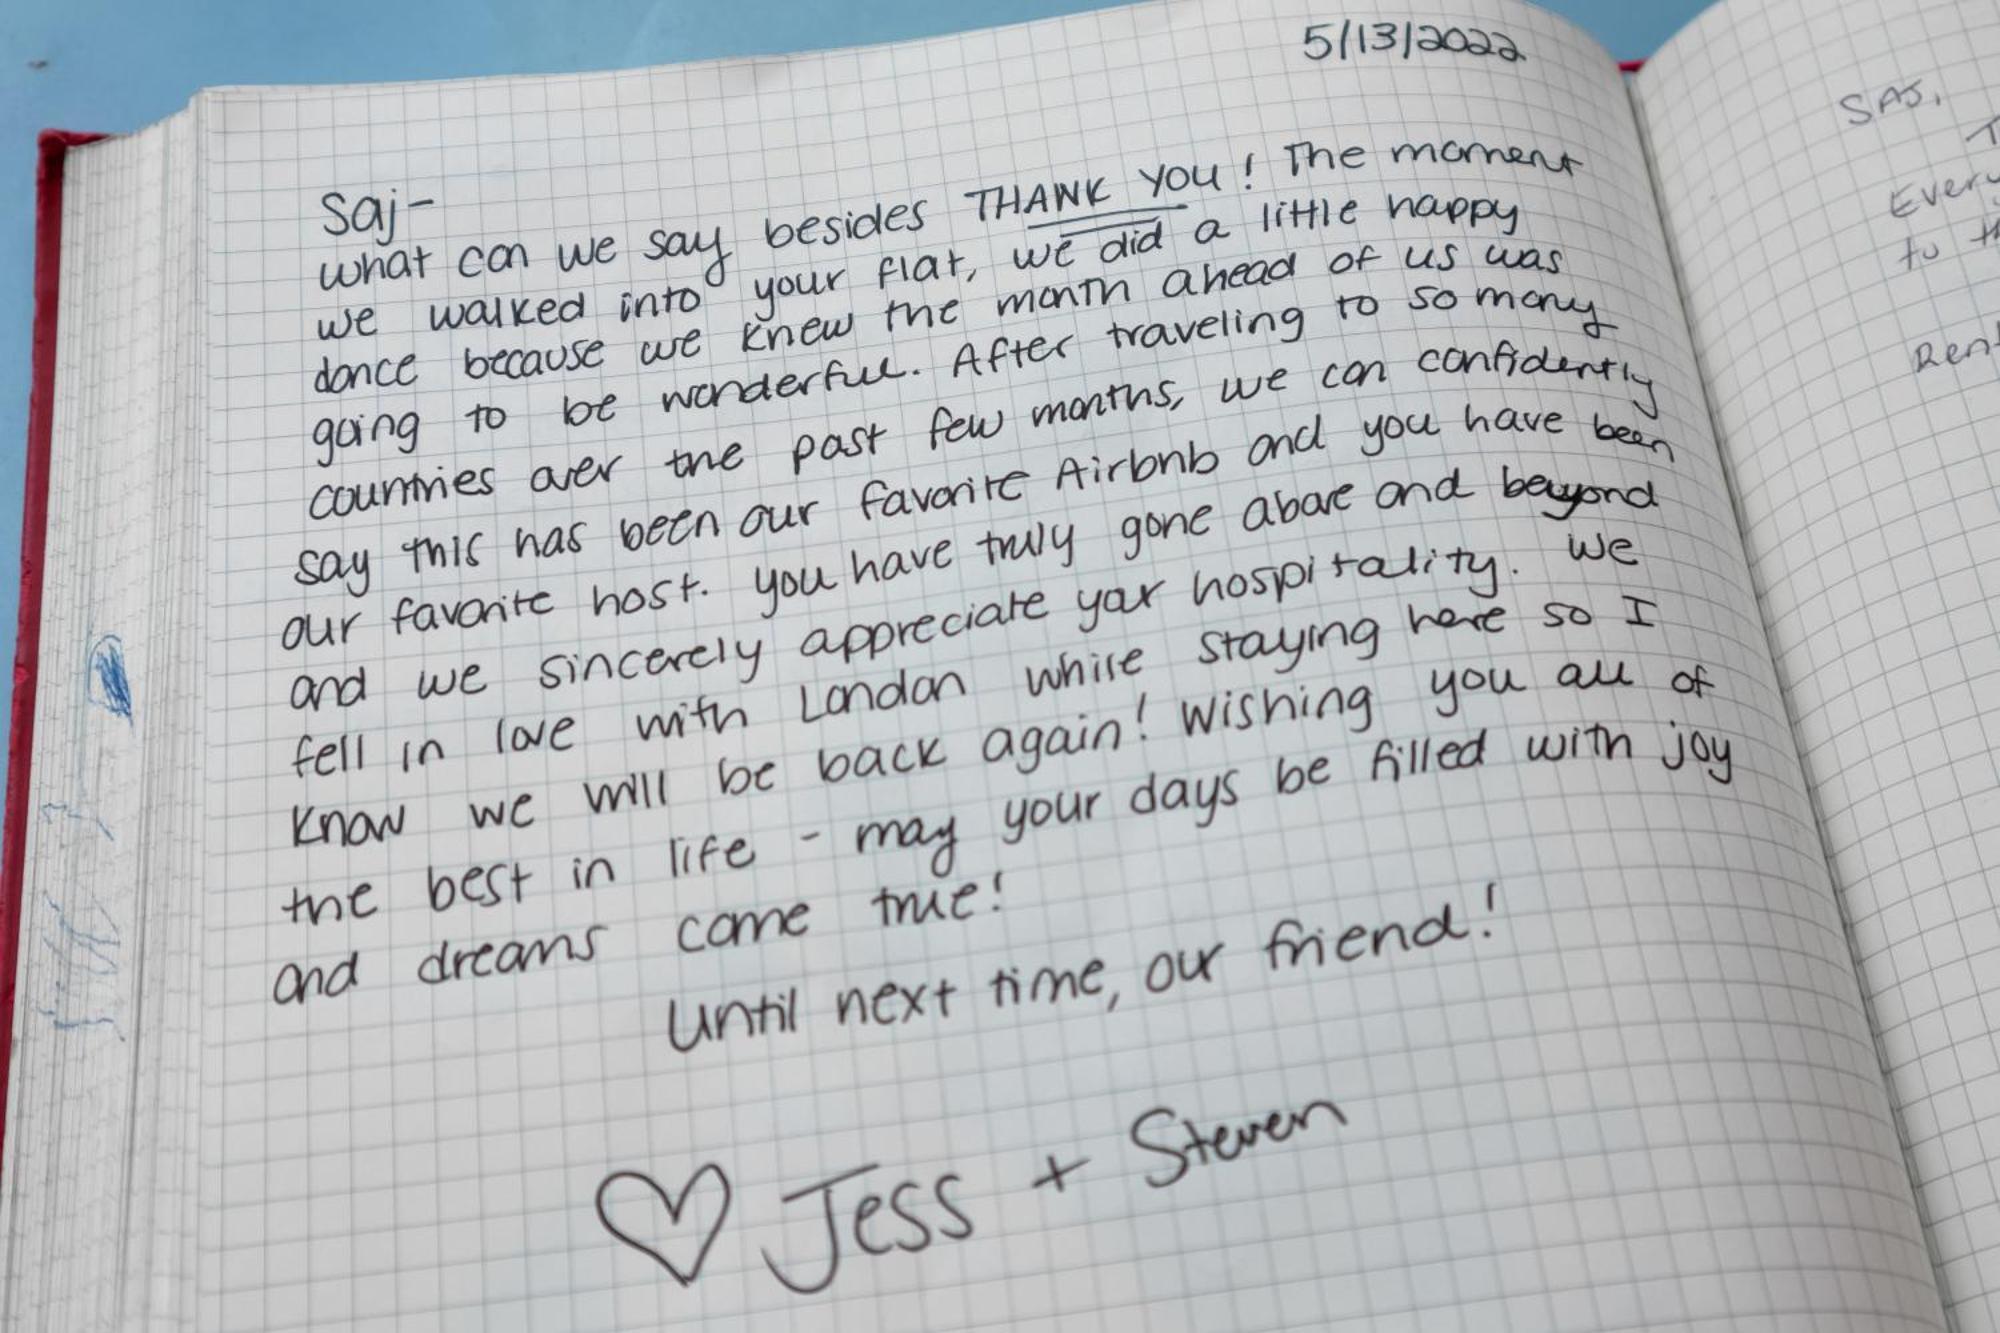 5/13/2022
Saj-
what can we say besides THANK YOU! The moment
we walked into your flat, we did a little happy
dance because we knew the month ahead of us was
going to be wonderful. After traveling to so many
countries over the past few months, we can confidently
say this has been our favorite Airbnb and you have been
our favorite host. you have truly gone above and beyond
and we sincerely appreciate your hospitality. We
fell in love with London while staying here so I
know we will be back again! Wishing you all of
the best in life - may your days be filled with joy
and dreams come true!
Until next time, our friend!
♡ Jess + Steven
SAJ,
Every
to